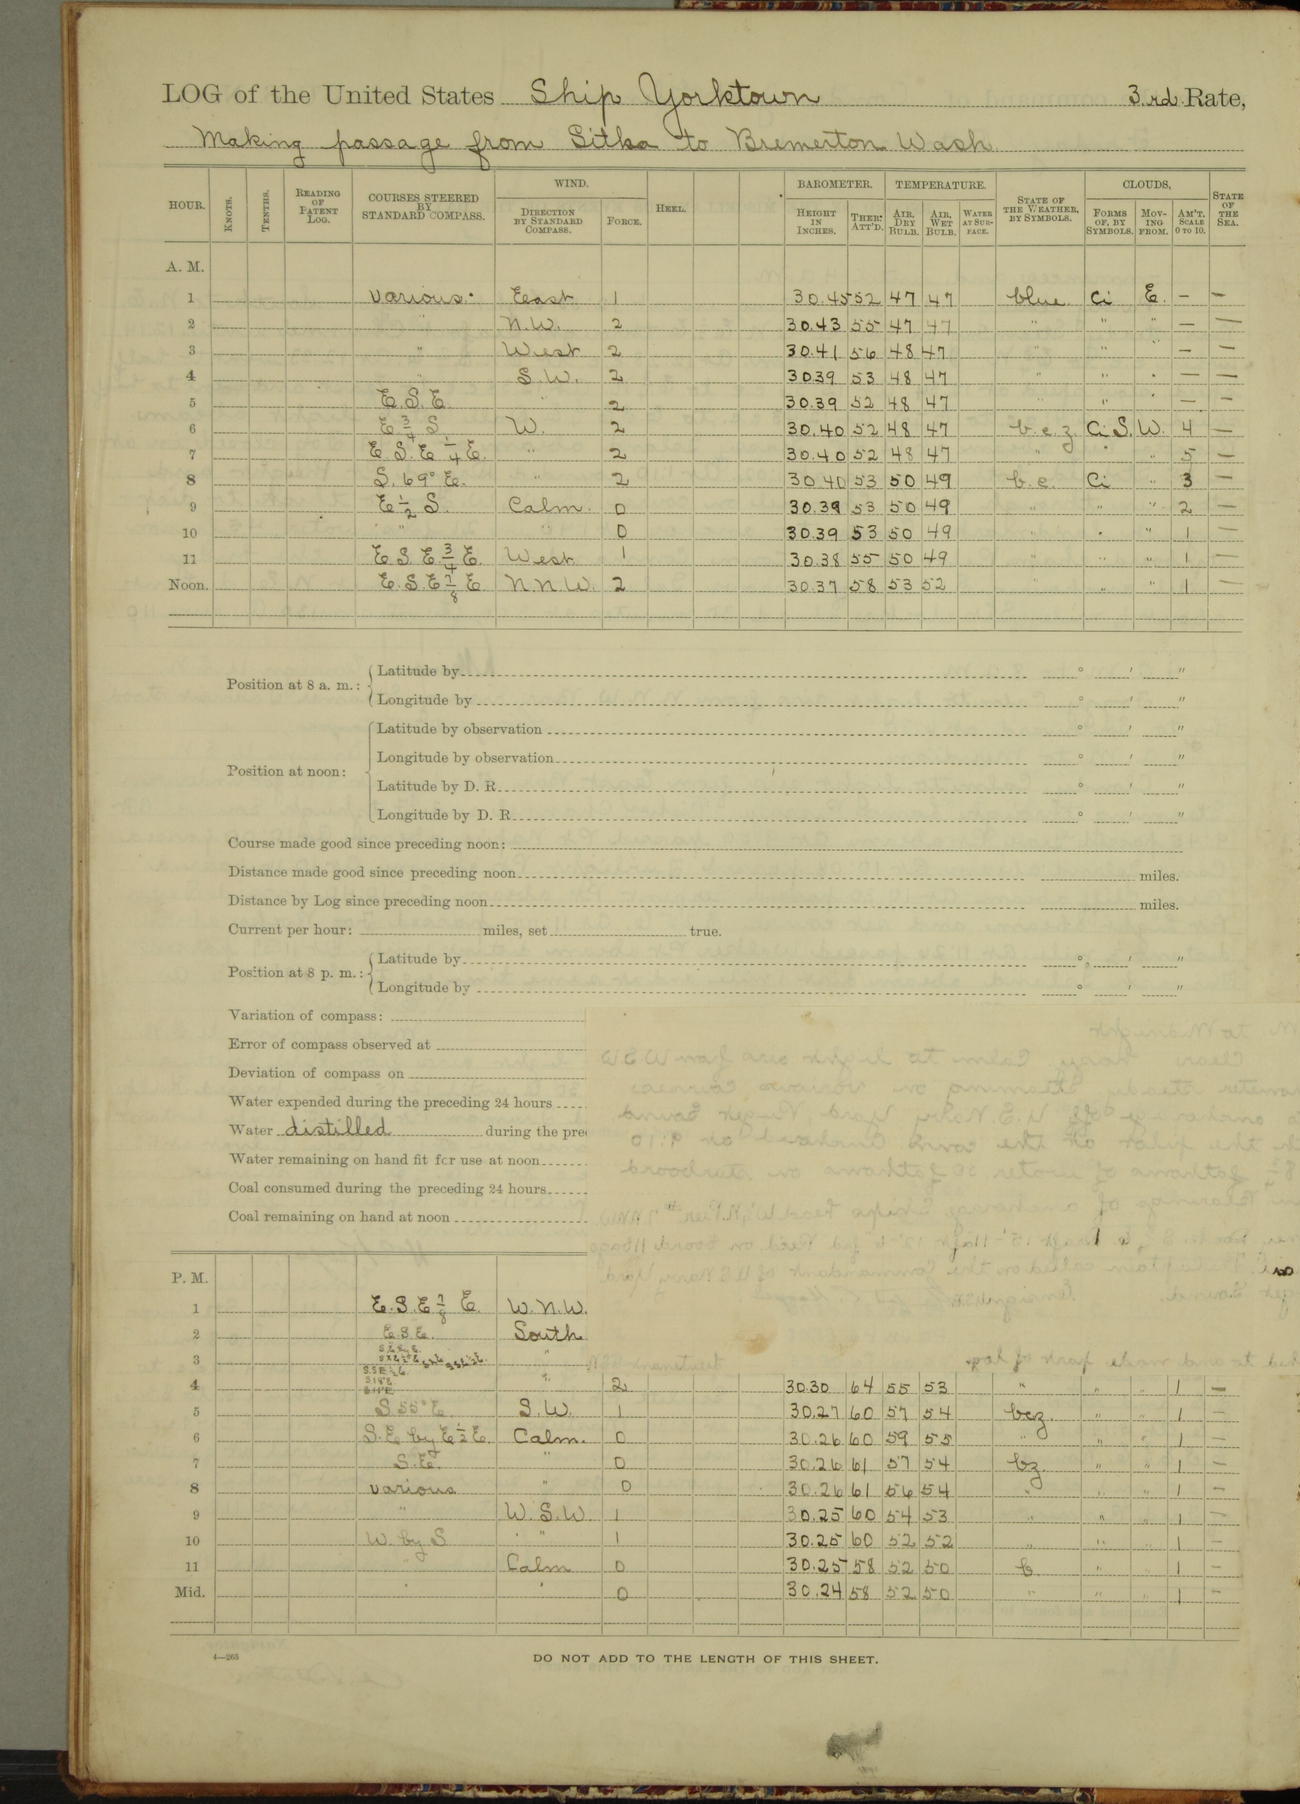 LOG of the United States Ship Yorktown 3rd Rate,
Making passage from Sitka to Bremerton Wash.
HOUR. KNOTS. TENTHS. READING OF PATENT LOG. COURSES STEERED BY STANDARD COMPASS. WIND. DIRECTION BY STANDARD COMPASS. FORCE. HEEL. BAROMETER. HEIGHT IN INCHES. THER. ATT'D. TEMPERATURE. AIR, DRY BULB. AIR, WET BULB. WATER AT SURFACE. STATE OF THE WEATHER, BY SYMBOLS. CLOUDS, FORMS OF, BY SYMBOLS. MOVING FROM. AM'T. SCALE 0 TO 10. STATE OF THE SEA.
A. M.
1 various. East 1 30.45 52 47 47 blue Ci E. — —
2 " N.W. 2 30.43 55 47 47 " " " — —
3 " West 2 30.41 56 48 47 " " " — —
4 " S.W. 2 30.39 53 48 47 " " " — —
5 E.S.E. " 2 30.39 52 48 47 " " " — —
6 E 3/4 S W. 2 30.40 52 48 47 b.c.z. Ci S. W. 4 —
7 E.S.E 1/4 E. " 2 30.40 52 48 47 " " " 5 —
8 S. 69° E. " 2 30.40 53 50 49 b.c. Ci " 3 —
9 E 1/2 S. Calm. 0 30.39 53 50 49 " " " 2 —
10 " " 0 30.39 53 50 49 " " " 1 —
11 E S E 3/4 E. West 1 30.38 55 50 49 " " " 1 —
Noon. E.S.E 7/8 E N.N.W. 2 30.37 58 53 52 " " " 1 —
Position at 8 a. m.: Latitude by ° ′ ″
Longitude by ° ′ ″
Position at noon: Latitude by observation ° ′ ″
Longitude by observation ° ′ ″
Latitude by D. R. ° ′ ″
Longitude by D. R. ° ′ ″
Course made good since preceding noon:
Distance made good since preceding noon miles.
Distance by Log since preceding noon miles.
Current per hour: miles, set true.
Position at 8 p. m.: Latitude by ° ′ ″
Longitude by ° ′ ″
Variation of compass:
Error of compass observed at
Deviation of compass on
Water expended during the preceding 24 hours
Water distilled during the pre
Water remaining on hand fit for use at noon
Coal consumed during the preceding 24 hours
Coal remaining on hand at noon
P. M.
1 E.S.E 7/8 E. W.N.W.
2 E.S.E. South
3 "
4 " 2 30.30 64 55 53 " " " 1 —
5 S 55° E S.W. 1 30.27 60 57 54 bcz " " 1 —
6 S.E by E 1/2 E Calm. 0 30.26 60 59 55 " " " 1 —
7 S.E. " 0 30.26 61 57 54 bz " " 1 —
8 various " 0 30.26 61 56 54 " " " 1 —
9 " W.S.W. 1 30.25 60 54 53 " " " 1 —
10 W. by S " 1 30.25 60 52 52 " " " 1 —
11 " Calm 0 30.25 58 52 50 b " " 1 —
Mid. " " 0 30.24 58 52 50 " " " 1 —
4—265
DO NOT ADD TO THE LENGTH OF THIS SHEET.